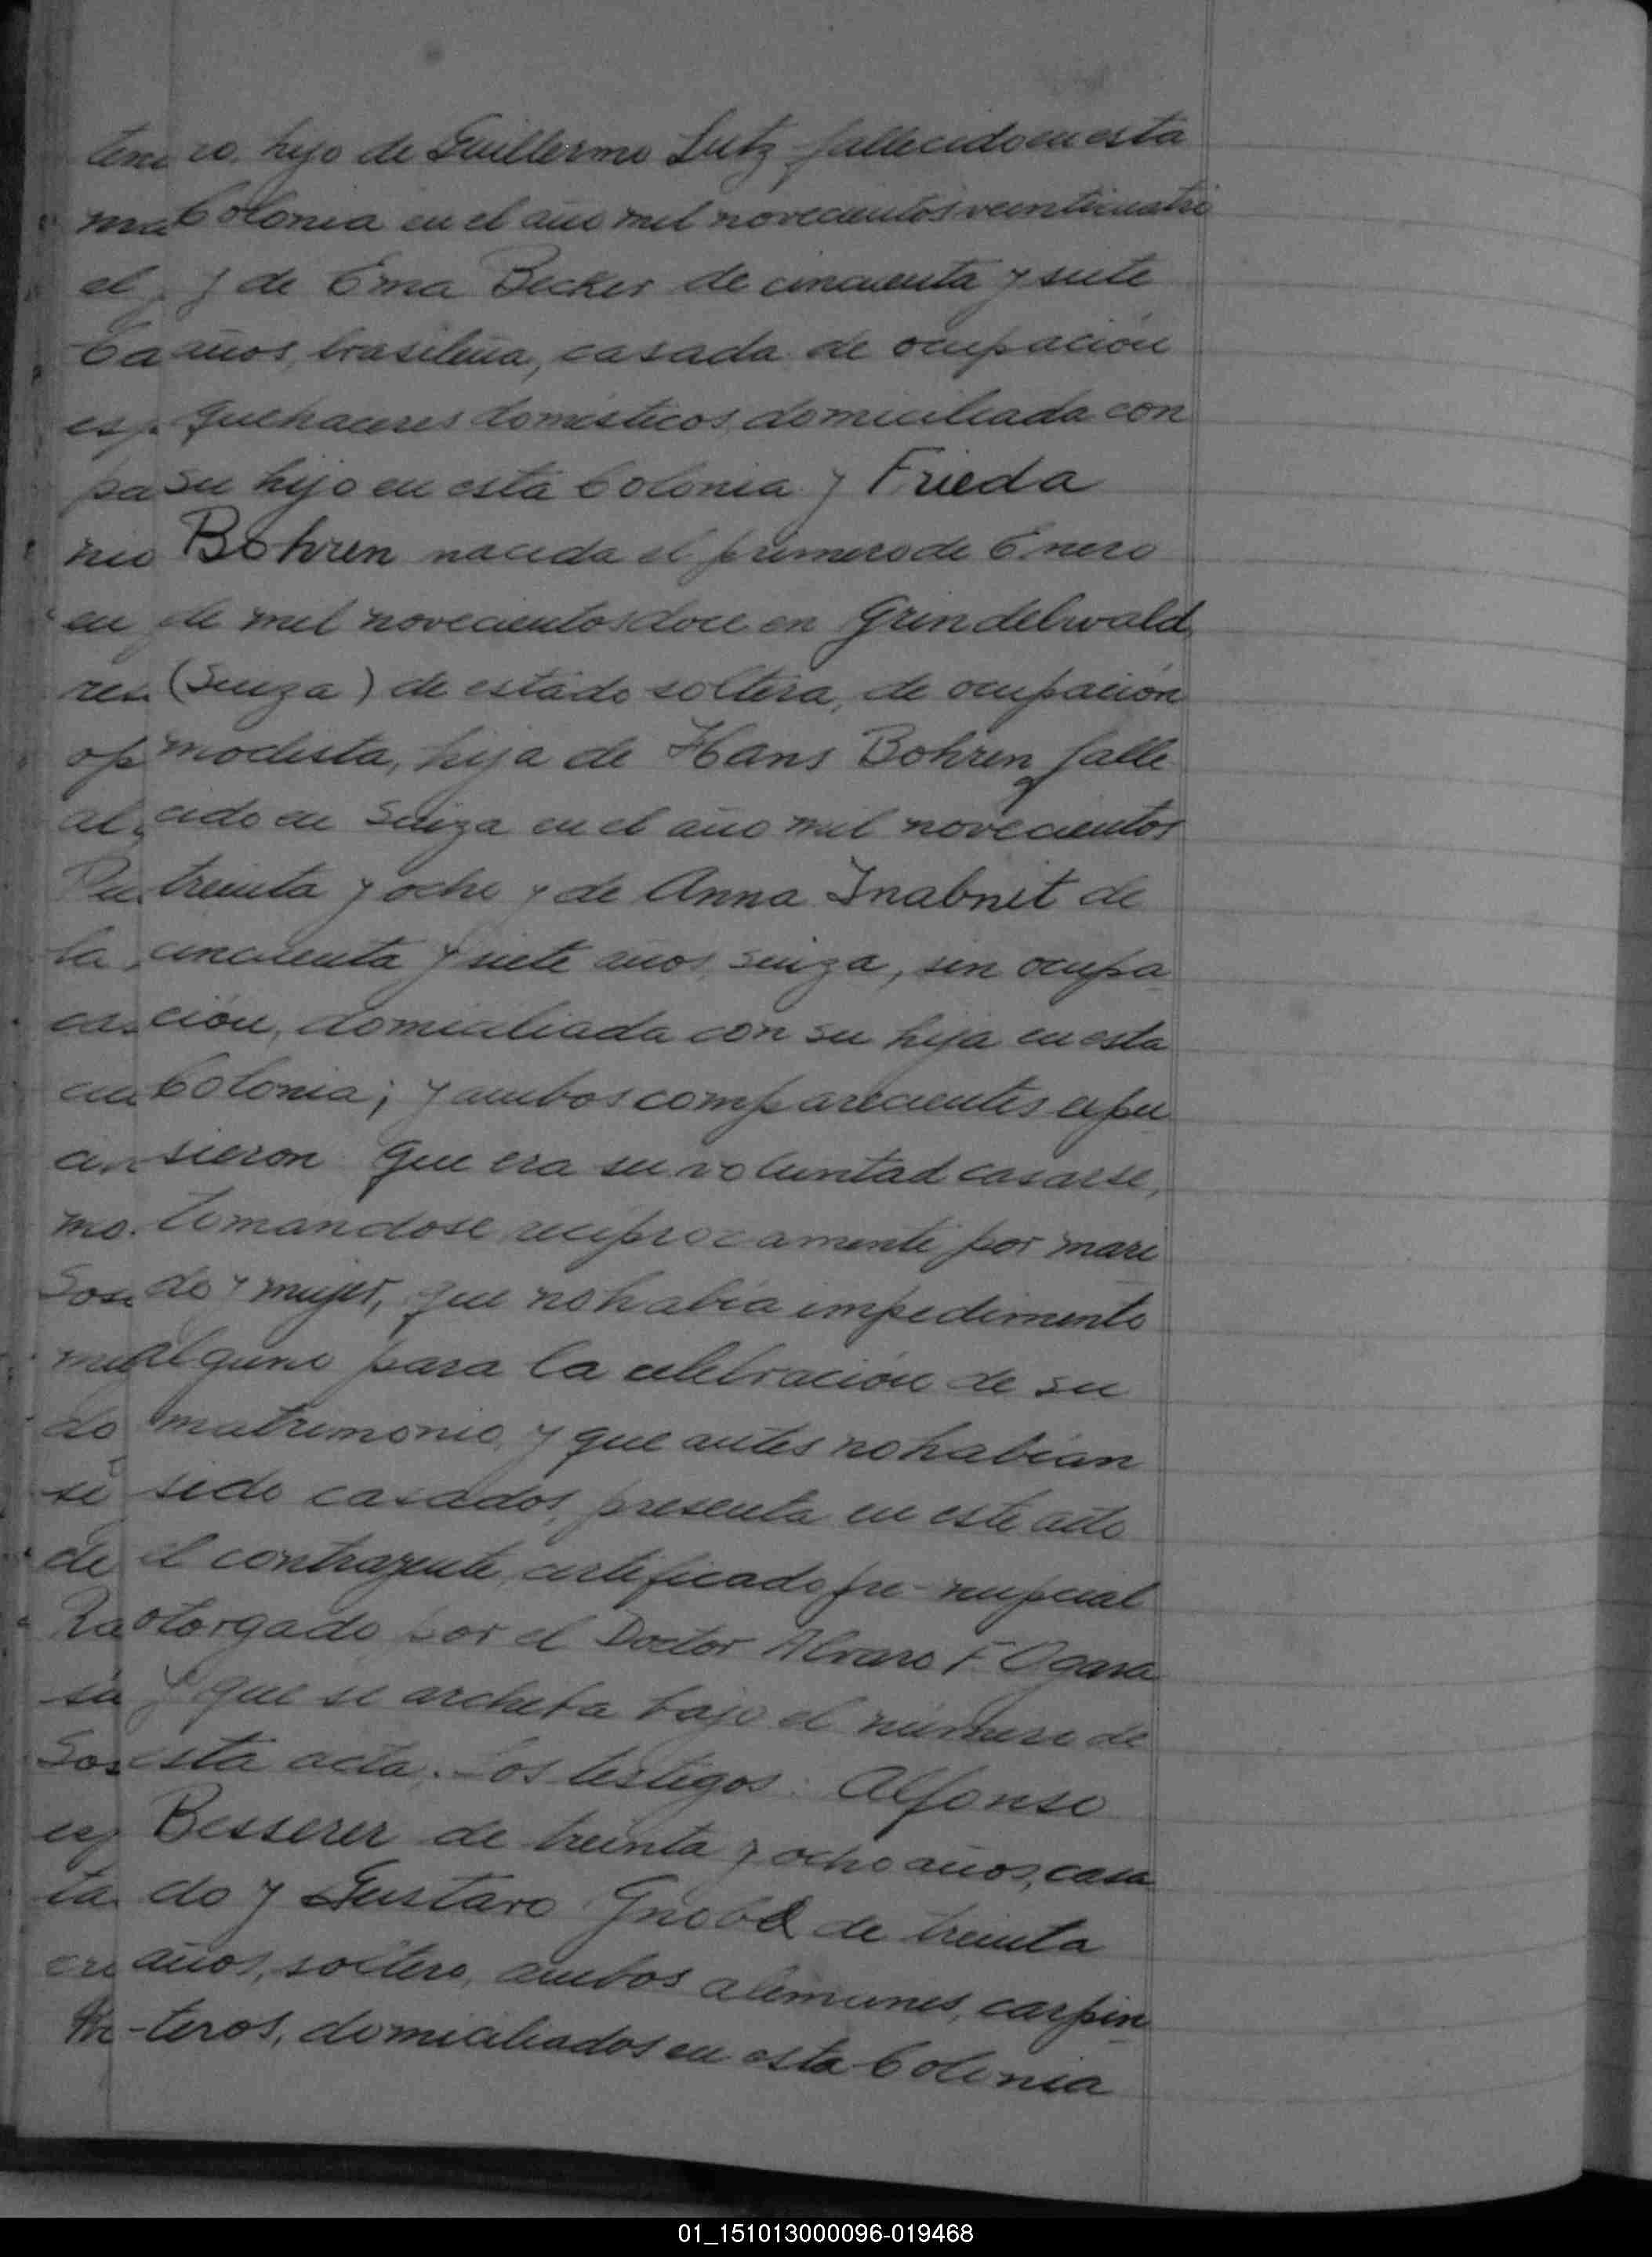 ro, hijo de Guillermo Lutz fallecido en esta
Colonia en el año mil novecientos veinticuatro
y de Ema Becker de cincuenta y siete
años, brasileña, casada de ocupación
quehaceres domésticos, domiciliada con
su hijo en esta Colonia y Frieda
Bohren nacida el primero de Enero
de mil novecientos doce en Grindelwald
(Suiza) de estado soltera, de ocupación
modista, hija de Hans Bohren falle
cido en Suiza en el año mil novecientos
treinta y ocho y de Anna Inabnit de
cincuenta y siete años, suiza, sin ocupa
ción, domiciliada con su hija en esta
Colonia; y ambos comparecientes expu
sieron que era su voluntad casarse,
tomandose reciprocamente por mari
do y mujer, que no habia impedimento
alguno para la celebración de su
matrimonio y que antes no habian
sido casados, presenta en este acto
el contrayente, certificado pre-nupcial
otorgado por el Doctor Alvaro F. Ogara
y que se archiva bajo el número de
esta acta. Los testigos: Alfonso
Besserer de treinta y ocho años, casa
do y Gustavo de treinta
años, soltero, ambos alemanes, carpin
-teros, domiciliados en esta Colonia
01_151013000096-019468